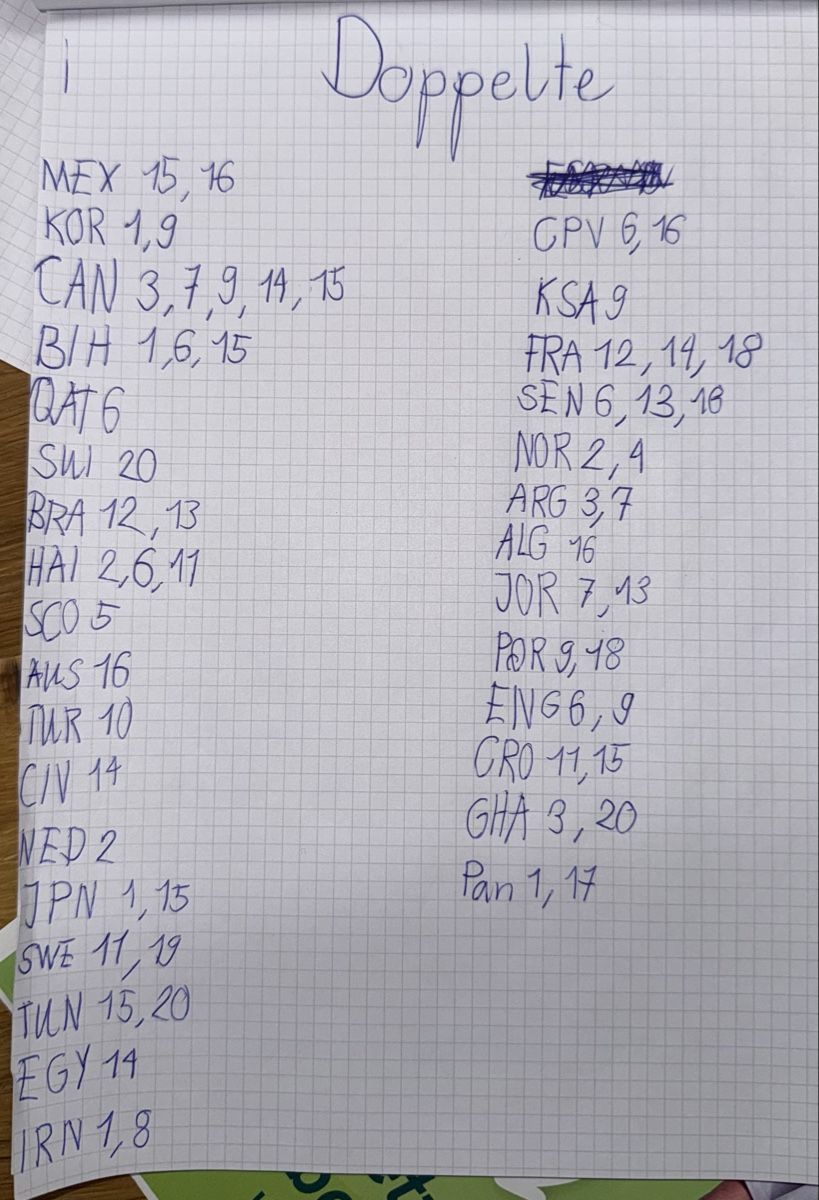 Doppelte
MEX 15, 16
KOR 1,9
CAN 3,7,9,14,15
BIH 1,6,15
QAT 6
SWI 20
BRA 12,13
HAI 2,6,11
SCO 5
AUS 16
TUR 10
CIV 14
NED 2
JPN 1,15
SWE 11,19
TUN 15,20
EGY 14
IRN 1,8
CPV 6,16
KSA 9
FRA 12,14,18
SEN 6,13,18
NOR 2,4
ARG 3,7
ALG 16
JOR 7,13
POR 9,18
ENG 6,9
CRO 11,15
GHA 3,20
Pan 1,17